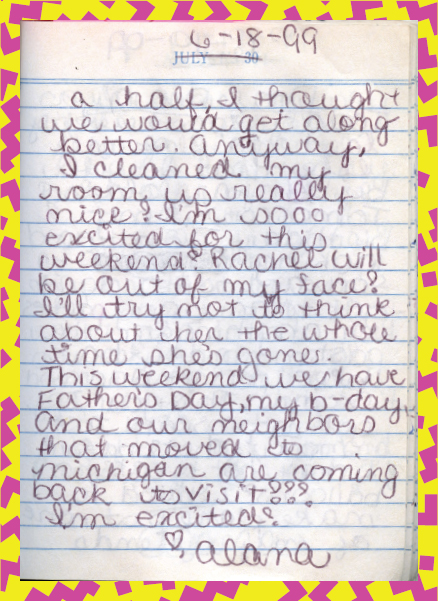 6-18-99
JULY 30
a half, I thought
we would get along
better. Anyway,
I cleaned my
room up really
nice! I'm sooo
excited for this
weekend! Rachel will
be out of my face!
I'll try not to think
about her the whole
time she's gone.
This weekend we have
Father's Day, my b-day,
and our neighbors
that moved to
michigan are coming
back to visit!!!
I'm excited!
♡, alana